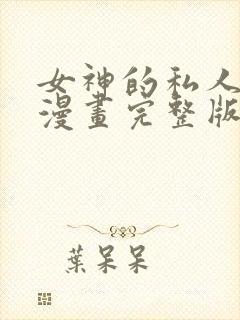 女神的私人
漫畫完整版
葉呆呆